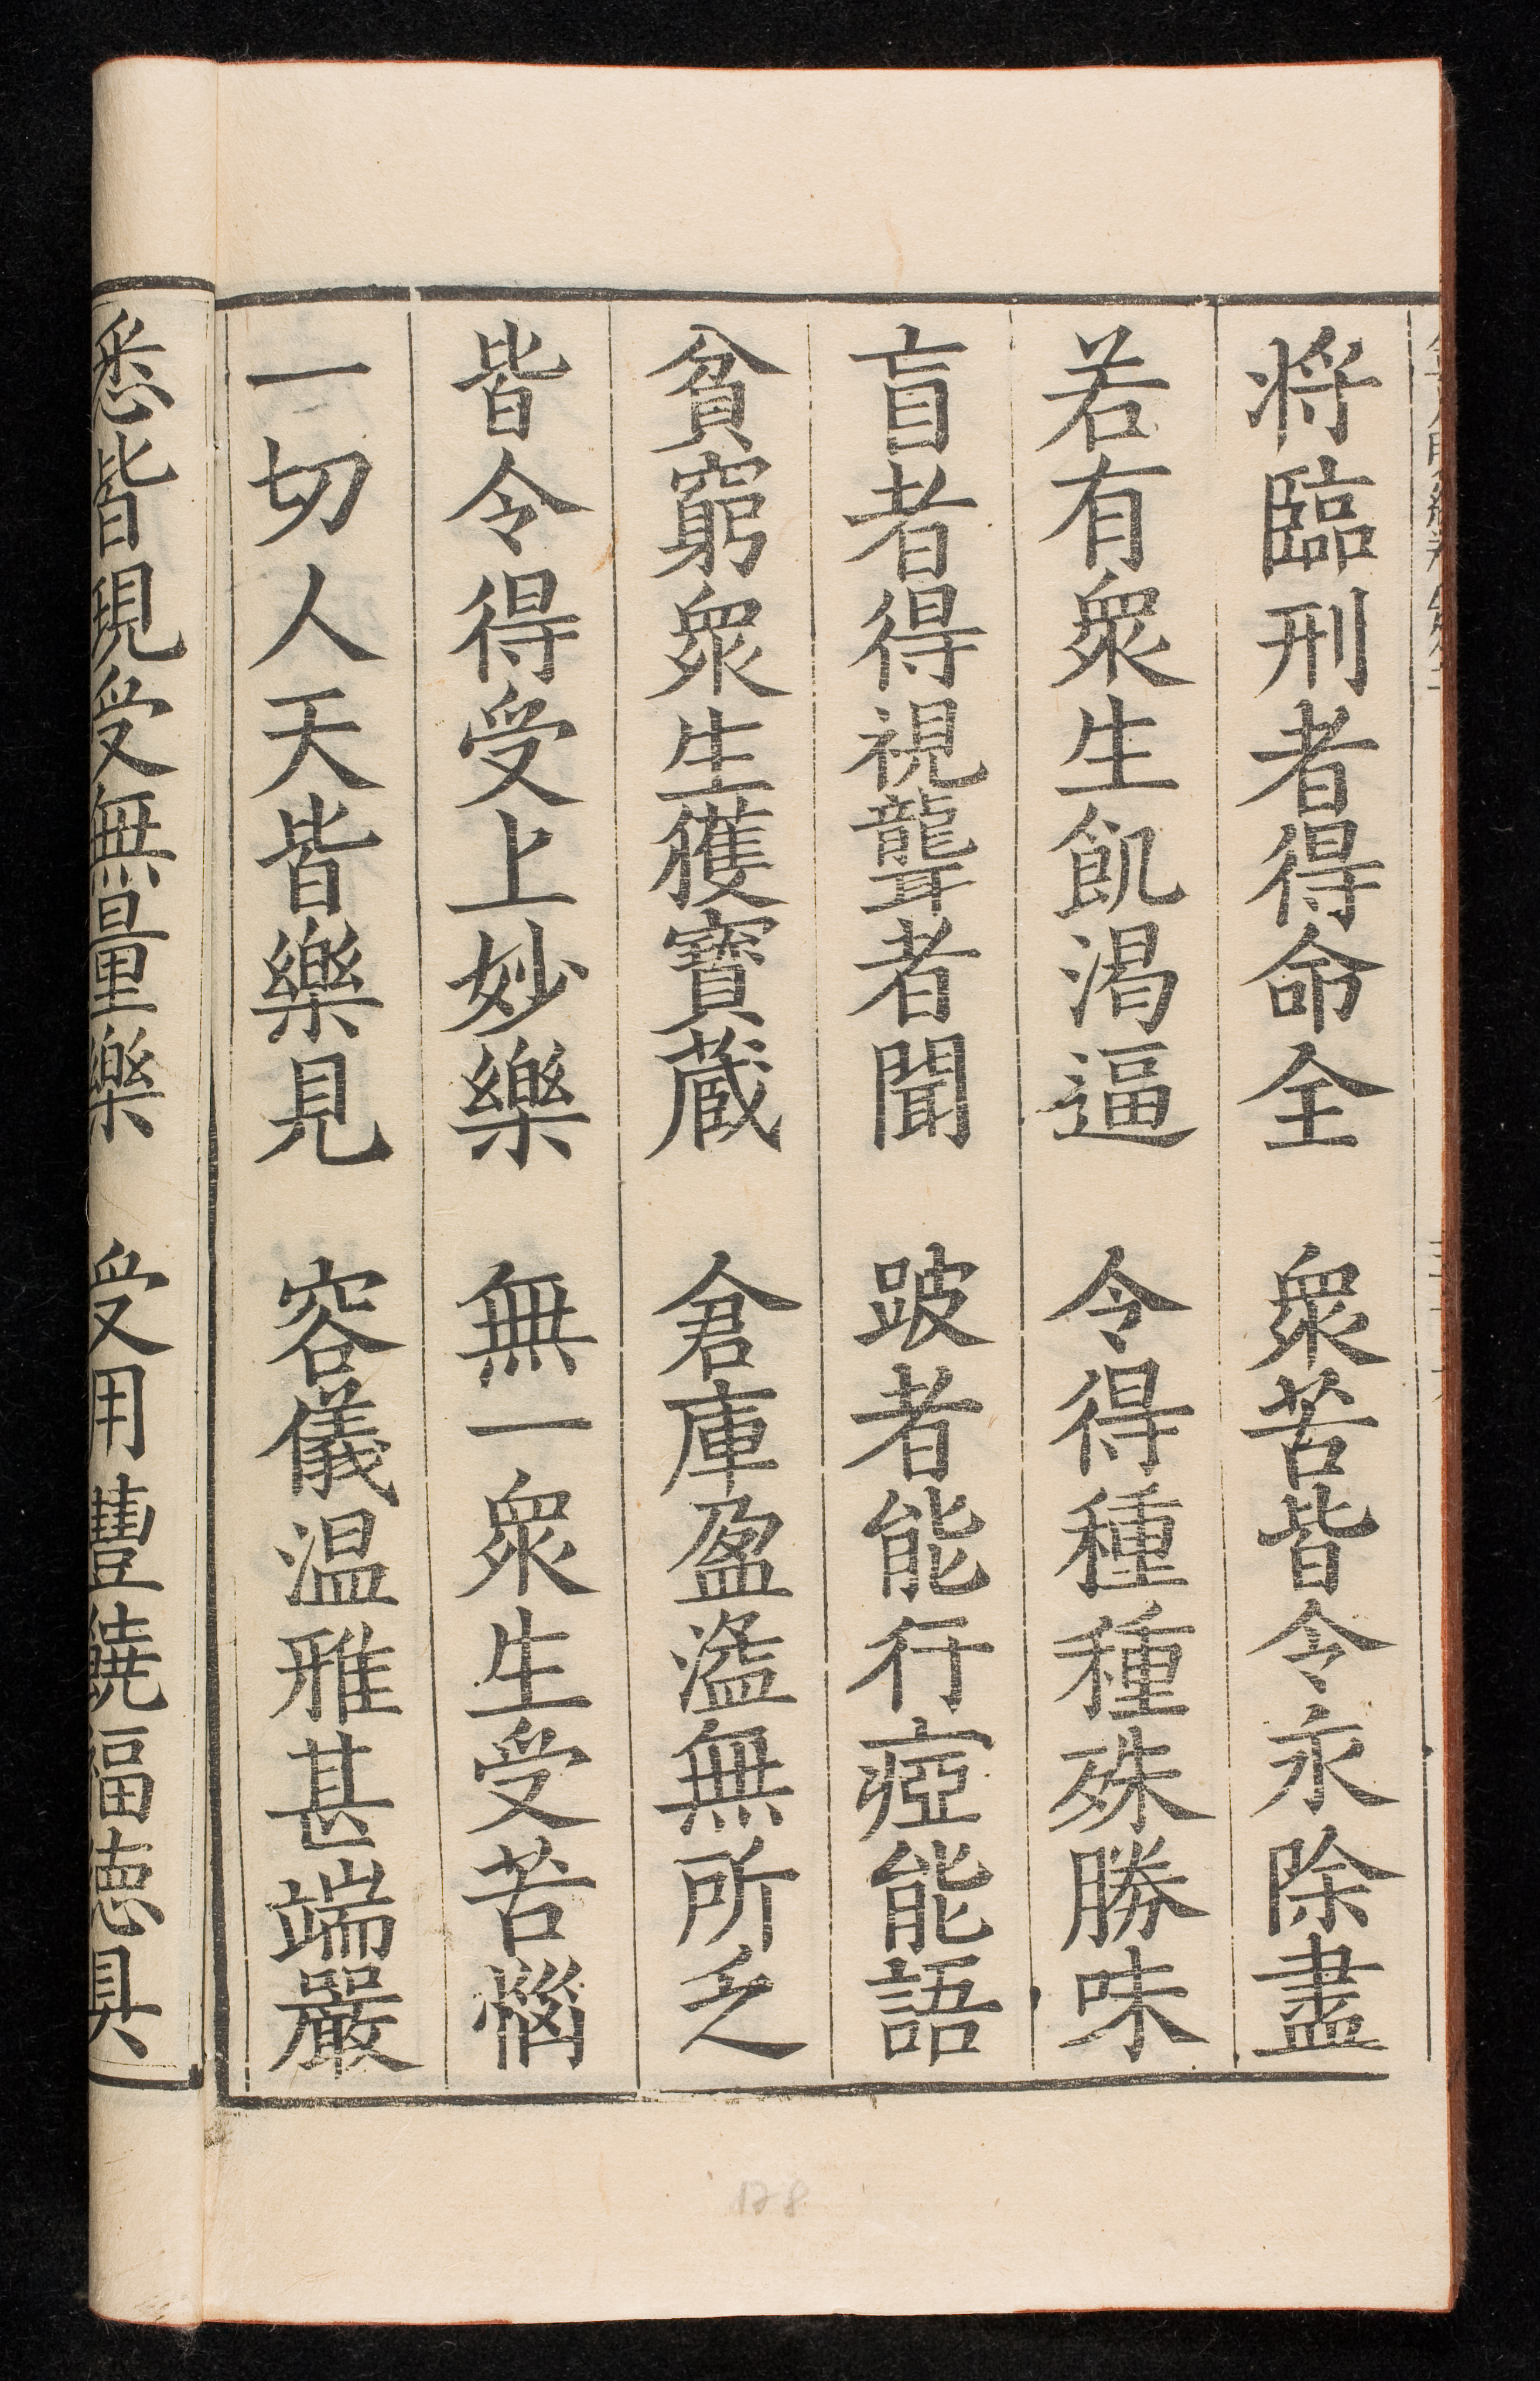 将臨刑者得命全　衆苦皆令永除盡
若有衆生飢渴逼　令得種種殊勝味
盲者得視聾者聞　跛者能行瘂能語
貧窮衆生獲寶蔵　倉庫盈溢無所乏
皆令得受上妙樂　無一衆生受苦惱
一切人天皆樂見　容儀温雅甚端嚴
悉皆現受無量樂　受用豐饒福德具
178